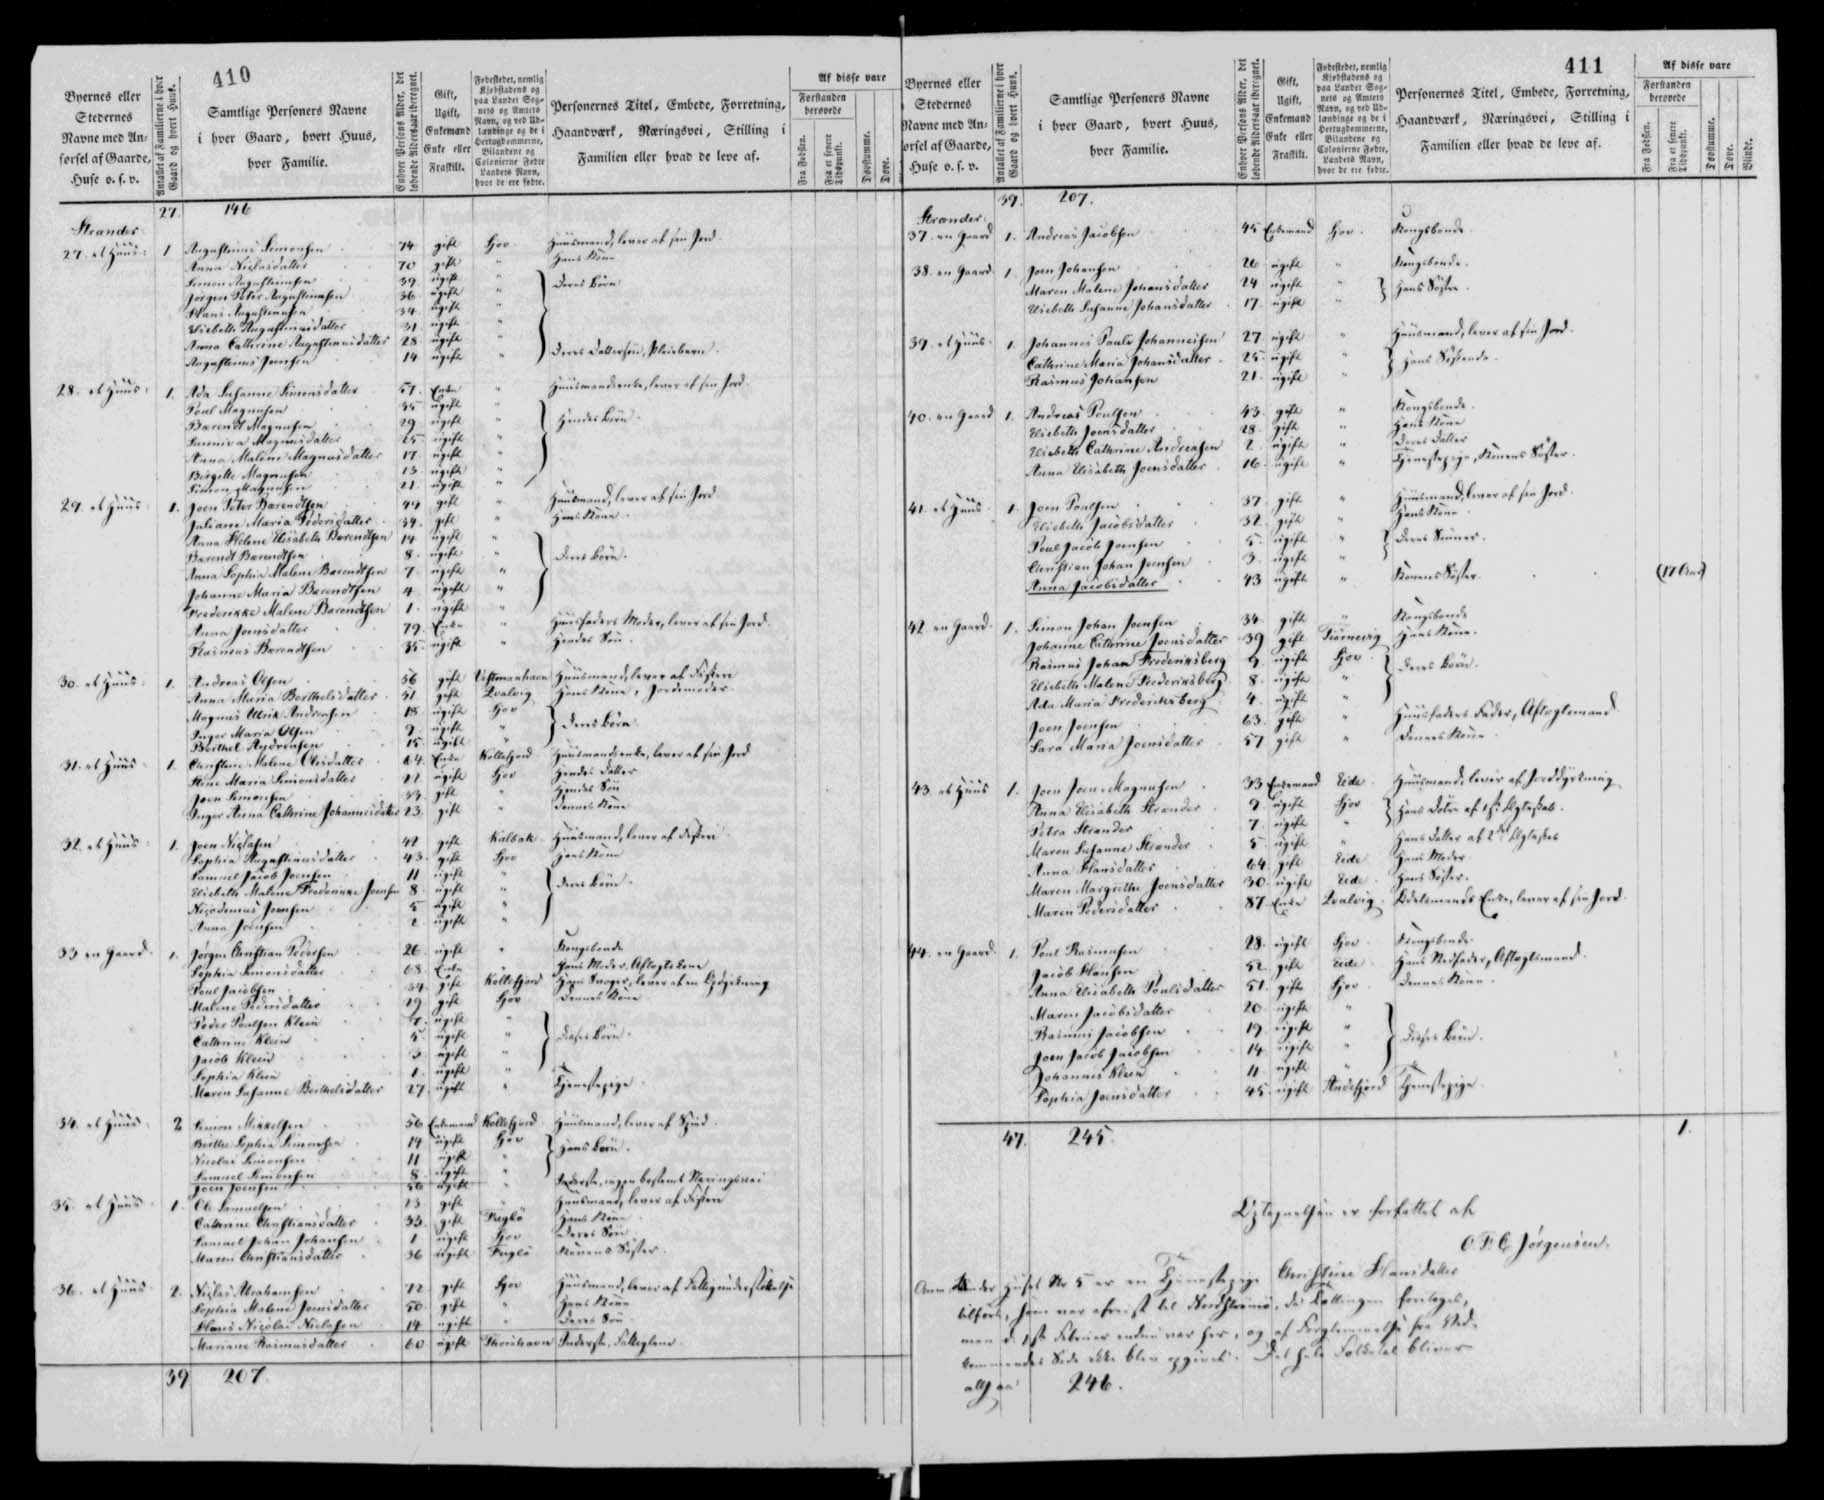 410
Byernes eller Stedernes Navne med Anførsel af Gaarde, Huse o. s. v.
Antallet af Familierne i hver Gaard og hvert Huus.
Samtlige Personers Navne i hver Gaard, hvert Huus, hver Familie.
Enhver Persons Alder, det løbende Aldersaar iberegnet.
Gift, Ugift, Enkemand Enke eller Fraskilt.
Fødestedet, nemlig Kjøbstadens og paa Landet Sognets og Amtets Navn, og ved Udlændinge og de i Hertugdømmerne, Bilandene og Colonierne Fødte Landets Navn, hvor de ere fødte.
Personernes Titel, Embede, Forretning, Haandværk, Næringsvei, Stilling i Familien eller hvad de leve af.
Af disse vare
Forstanden berøvede
Fra Fødslen.
Fra et senere Tidspunkt.
Døvstumme.
Døve.
27. 146
Strander
27. et Huus 1 Augustinus Simonsen 74 gift Hov Huusmand, lever af sin Jord
Anna Niclasdatter 70 gift " Hans Kone
Simon Augustinusen 39 ugift " } Deres Børn
Jørgen Peter Augustinusen 36 ugift "
Hans Augustinusen 34 ugift "
Elsebeth Augustinusdatter 31 ugift "
Anna Cathrine Augustinusdatter 28 ugift "
Augustinus Joensen 14 ugift " Deres Dattersøn, Pleiebarn
28. et Huus 1. Ada Susanne Simonsdatter 57 Enke " Huusmandsenke, lever af sin Jord
Poul Magnusen 35 ugift " } Hendes Børn
Barendt Magnusen 29 ugift "
Sunniva Magnusdatter 25 ugift "
Anna Malene Magnusdatter 17 ugift "
Birgitte Magnusen 13 ugift "
Simon Magnusen 21 ugift "
29. et Huus 1. Joen Peter Barendtsen 44 gift " Huusmand, lever af sin Jord
Juliane Maria Pedersdatter 34 gift " Hans Kone
Anna Helene Elisabeth Barendtsen 14 ugift " } Deres Børn
Barendt Barendtsen 8 ugift "
Anna Sophia Malene Barendtsen 7 ugift "
Johanne Maria Barendtsen 4 ugift "
Frederikke Malene Barendtsen 1 ugift "
Anna Joensdatter 79 Enke " Huusfaders Moder, lever af sin Jord
Rasmus Barendtsen 35 ugift " Hendes Søn
30. et Huus 1. Andreas Olsen 56 gift Vestmanhavn Huusmand, lever af Fiskeri
Anna Maria Berthelsdatter 51 gift Qvalvig Hans Kone, Jordemoder
Magnus Ulrik Andreasen 18 ugift Hov } Deres Børn
Inger Maria Olsen 9 ugift "
Berthel Andreasen 15 ugift "
31. et Huus 1. Christine Malene Olesdatter 64 Enke Kollefjord Huusmandsenke, lever af sin Jord
Stine Maria Simonsdatter 22 ugift Hov Hendes Datter
Joen Simonsen 33 gift " Hendes Søn
Inger Anna Cathrine Johannesdatter 23 gift " Dennes Kone
32. et Huus 1. Joen Niclasen 42 gift Kalbak Huusmand, lever af Fiskeri
Sophia Augustinusdatter 43 gift Hov Hans Kone
Samuel Jacob Joensen 11 ugift " } Deres Børn
Elsebeth Malene Frederikke Joensen 8 ugift "
Nicodemus Joensen 5 ugift "
Anna Joensen 2 ugift "
33 en Gaard 1. Jørgen Christian Pedersen 26 ugift " Kongsbonde
Sophia Simonsdatter 68 Enke " Hans Moder, Aftægtskone
Poul Jacobsen 34 gift Kollefjord
Malene Pedersdatter 29 gift Hov Dennes Kone
Peder Poulsen Klein 7 ugift " } Disses Børn
Cathrine Klein 5 ugift "
Jacob Klein 3 ugift "
Sophia Klein 1 ugift "
Maren Susanne Berthelsdatter 27 ugift " Tjenestepige
34. et Huus 2 Simon Mikkelsen 56 Enkemand Kollefjord Huusmand, lever af
Berthe Sophia Simonsen 14 ugift Hov } Hans Børn
Nicolai Simonsen 11 ugift "
Samuel Simonsen 8 ugift "
Joen Joensen 56 ugift " Inderste, ingen bestemt Næringsvei
35. et Huus 1. Ole Samuelsen 23 gift " Huusmand, lever af Fiskeri
Cathrine Christiansdatter 33 gift Fuglø Hans Kone
Samuel Johan Johansen 1 ugift Hov Deres Søn
Maren Christiansdatter 36 ugift Fuglø Konens Søster
36. et Huus 2. Niclas Abrahamsen 72 gift Hov Huusmand, lever af Fattigunderstøttelse
Sophia Malene Joensdatter 50 gift " Hans Kone
Hans Nicolai Niclasen 14 ugift " Deres Søn
Mariane Rasmusdatter 60 ugift Thorshavn Inderste, Fattiglem
39 207.
411
Byernes eller Stedernes Navne med Anførsel af Gaarde, Huse o. s. v.
Antallet af Familierne i hver Gaard og hvert Huus.
Samtlige Personers Navne i hver Gaard, hvert Huus, hver Familie.
Enhver Persons Alder, det løbende Aldersaar iberegnet.
Gift, Ugift, Enkemand Enke eller Fraskilt.
Fødestedet, nemlig Kjøbstadens og paa Landet Sognets og Amtets Navn, og ved Udlændinge og de i Hertugdømmerne, Bilandene og Colonierne Fødte Landets Navn, hvor de ere fødte.
Personernes Titel, Embede, Forretning, Haandværk, Næringsvei, Stilling i Familien eller hvad de leve af.
Af disse vare
Forstanden berøvede
Fra Fødslen.
Fra et senere Tidspunkt.
Døvstumme.
Døve.
Blinde.
39. 207.
Strander
37. en Gaard 1. Andreas Jacobsen 45 Enkemand Hov Kongsbonde
38. en Gaard 1 Joen Johansen 26 ugift " Kongsbonde.
Maren Malene Johansdatter 24 ugift " } Hans Søstre
Elsebeth Susanne Johansdatter 17 ugift "
39. et Huus 1. Johannes Poule Johannesen 27 ugift " Huusmand, lever af sin Jord.
Cathrine Maria Johansdatter 25 ugift " } Hans Søskende
Rasmus Johansen 21 ugift "
40. en Gaard 1. Andreas Poulsen 43 gift " Kongsbonde
Elsebeth Joensdatter 28 gift " Hans Kone
Elsebeth Cathrine Andreasen 2 ugift " Deres Datter
Anna Elisabeth Joensdatter 16 ugift " Tjenestepige, Konens Søster.
41. et Huus 1. Joen Poulsen 37 gift " Huusmand, lever af sin Jord
Elsebeth Jacobsdatter 32 gift " Hans Kone
Poul Jacob Joensen 5 ugift " } Deres Sønner.
Christian Johan Joensen 3 ugift "
Anna Jacobsdatter 43 ugift " Konens Søster (17 Aar)
42. en Gaard 1. Simon Johan Joensen 34 gift " Kongsbonde
Johanne Cathrine Joensdatter 39 gift Tiørnevig Hans Kone
Rasmus Johan Frederiksberg 9 ugift Hov } Deres Børn.
Elsebeth Malene Frederiksberg 8 ugift "
Ada Maria Frederiksberg 4 ugift "
Joen Joensen 63 gift " Huusfaders Fader, Aftægtsmand
Sara Maria Joensdatter 57 gift " Dennes Kone
43. et Huus 1. Joen Joen Magnusen 33 Enkemand Eide Huusmand, lever af Jorddyrkning
Anna Elisabeth Strander 9 ugift Hov } Hans Døtre af 1ste Ægteskab.
Petra Strander 7 ugift "
Maren Susanne Strander 5 ugift " Hans Datter af 2det Ægteskab
Anna Hansdatter 64 gift Eide Hans Moder
Maren Margrethe Joensdatter 30 ugift Eide Hans Søster.
Maren Pedersdatter 87 Enke Qvalvig Odelsmands Enke, lever af sin Jord
44. en Gaard 1. Poul Rasmusen 28 ugift Hov Kongsbonde
Jacob Hansen 52 gift Eide Hans Stedfader, Aftægtsmand.
Anna Elisabeth Poulsdatter 51 gift Hov Dennes Kone.
Maren Jacobsdatter 20 ugift " } Disses Børn.
Rasmus Jacobsen 19 ugift "
Joen Jacob Jacobsen 14 ugift "
Johannes Klein 11 ugift "
Sophia Joensdatter 45 ugift Andefjord Tjenestepige
47. 245. 1.
Optegnelsen er forfattet af
O. F. C. Jørgensen.
Anm. Under Huset Nr 5 er en Tjenestepige Christine Hansdatter
tilført, som var afreist til Nordstrømø, da Tællingen foretoges,
men d. 1ste Februar endnu var her, og af Forglemmelse fra Ved-
kommendes Side ikke blev opgivet. Det hele Folketal bliver
altsaa 246.